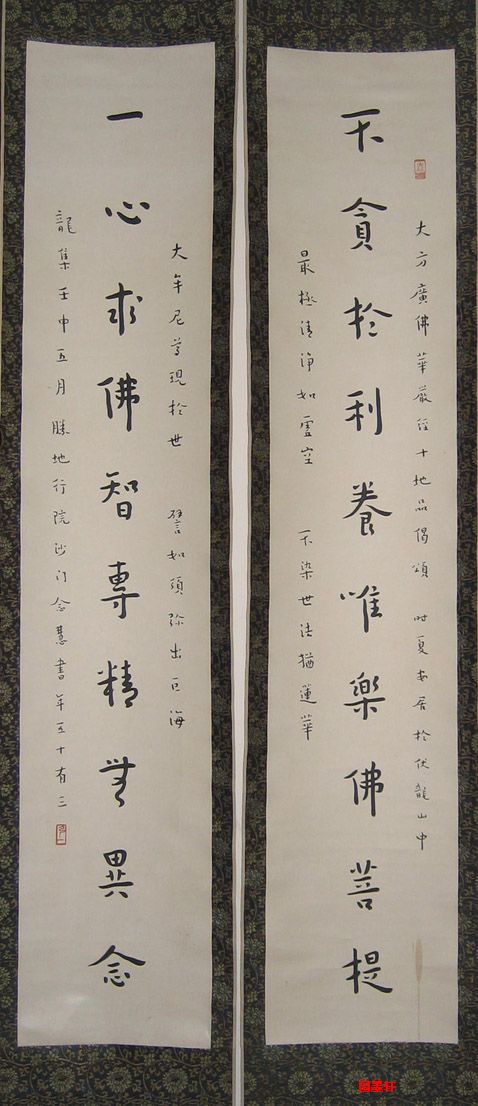 大方廣佛華嚴經十地品偈頌 時夏安居於伏龍山中
不貪於利養唯樂佛菩提
最極清淨如虛空 不染世法猶蓮華
大牟尼尊現於世 譬如須弥出巨海
一心求佛智專精無異念
龍集壬申五月勝地行院沙门念慧書年五十有三